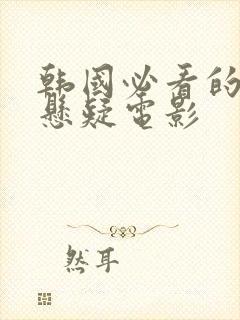 韩国必看的
悬疑电影
然耳